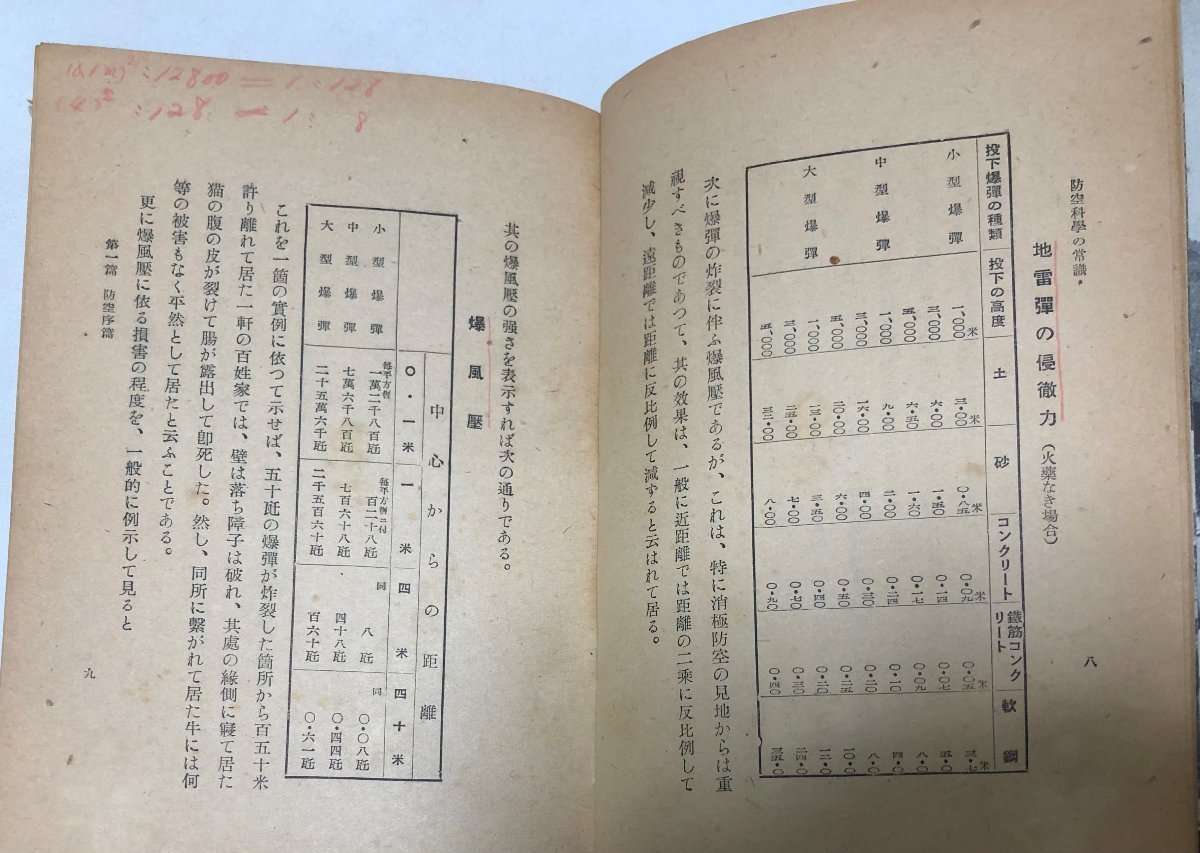 防空科學の常識・
八
地雷彈の侵徹力(火藥なき場合)
投下爆彈の種類 投下の高度 土 砂 コンクリート 鐵筋コンクリート 軟鋼
小型爆彈 一,〇〇〇米 三・〇〇米 〇・八五米 〇・〇九米 〇・〇五米 三・七米
三,〇〇〇 六・〇〇 一・五〇 〇・一四 〇・〇七 五・〇
五,〇〇〇 六・五〇 一・六〇 〇・一七 〇・〇九 八・〇
中型爆彈 一,〇〇〇 九・〇〇 二・〇〇 〇・二四 〇・一〇 四・〇
三,〇〇〇 一六・〇〇 四・〇〇 〇・三〇 〇・二〇 八・〇
五,〇〇〇 二〇・〇〇 六・〇〇 〇・五〇 〇・二五 一〇・〇
大型爆彈 一,〇〇〇 一三・〇〇 三・五〇 〇・四〇 〇・二〇 一二・〇
三,〇〇〇 二五・〇〇 七・〇〇 〇・七〇 〇・三〇 二四・〇
五,〇〇〇 三二・〇〇 八・〇〇 〇・九〇 〇・四〇 三五・〇
次に爆彈の炸裂に伴ふ爆風壓であるが、これは、特に消極防空の見地からは重
視すべきものであつて、其の效果は、一般に近距離では距離の二乘に反比例して
減少し、遠距離では距離に反比例して減ずると云はれて居る。
其の爆風壓の强さを表示すれば次の通りである。
爆風壓
中心からの距離
〇・一米 一米 四米 四十米
小型爆彈 每平方糎 一萬二千八百瓩 每平方糎ニ付 百二十八瓩 同 八瓩 同 〇・〇八瓩
中型爆彈 七萬六千八百瓩 七百六十八瓩 四十八瓩 〇・四四瓩
大型爆彈 二十五萬六千瓩 二千五百六十瓩 百六十瓩 〇・六一瓩
これを一箇の實例に依つて示せば、五十瓩の爆彈が炸裂した箇所から百五十米
許り離れて居た一軒の百姓家では、壁は落ち障子は破れ、其處の緣側に寢て居た
猫の腹の皮が裂けて腸が露出して卽死した。然し、同所に繋がれて居た牛には何
等の被害もなく平然として居たと云ふことである。
更に爆風壓に依る損害の程度を、一般的に例示して見ると
第一篇 防空序篇
九
:12800 = 1:128
:128 = 1: 8